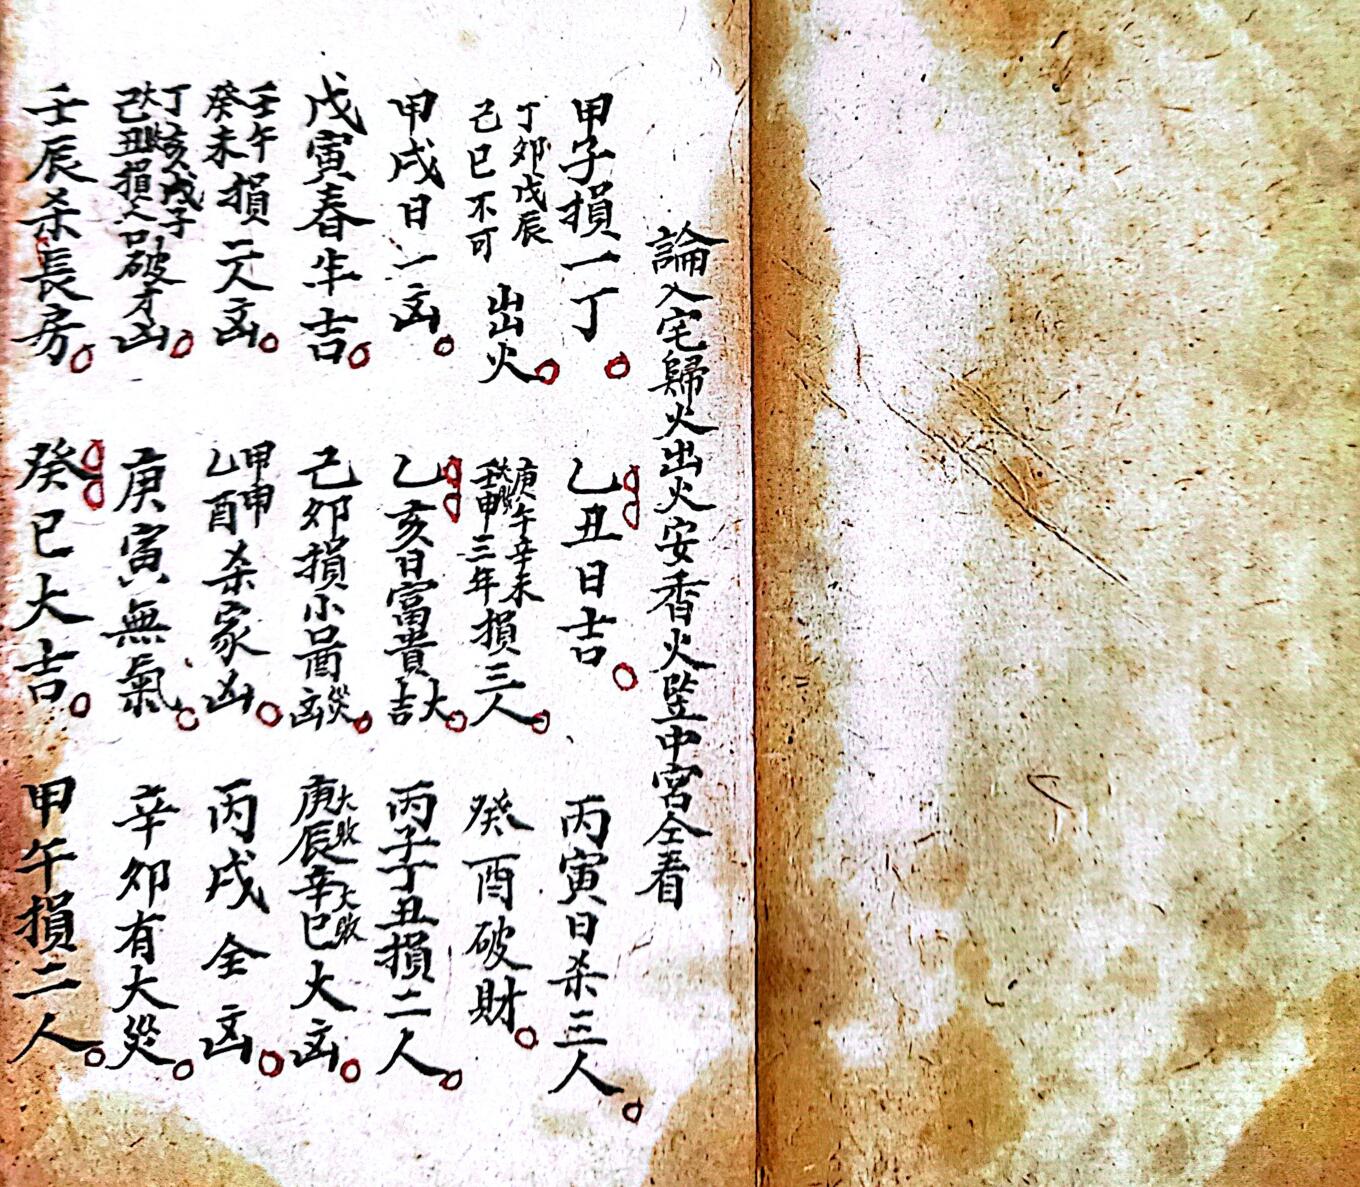 論入宅歸火出火安香火監中宮仝看
甲子損一丁
乙丑日吉
丙寅日杀三人
丁卯戊辰
己巳不可
出火
庚午辛未
壬申三年損三人
癸酉破財
甲戌日一凶
乙亥日富貴大吉
丙子丁丑損二人
戊寅春牛吉
己卯損小口酉災凶
庚辰大敗辛巳大敗大凶
壬午
癸未損二人凶
甲申
乙酉杀家凶
丙戌全凶
丁亥戊子
己丑損人口破才凶
庚寅無氣
辛卯有大災
壬辰杀長房
癸巳大吉
甲午損二人